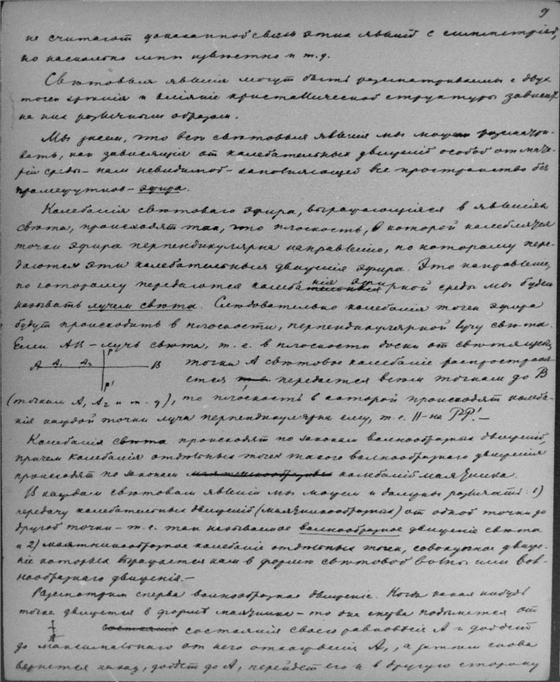 9
не считают доказанной связь этих явлий с симметрией,
но насколько мпп известно и т. д.
Свѣтовыя явлия могут быть разсматриваемы с двух
точек зрѣния и влияние кристаллической структуры зависит
на них различным образом.
Мы знаем, что всѣ свѣтовыя явления мы можем разсматри-
вать, как зависящия от колебательных движений особой от маче-
рий среды - нам невидимой - заполняющей все пространство без
промежутков - эфира.
Колебания свѣтоваго эфира, выражающияся в явлениях
свѣта, происходят так, что плоскость, в которой колеблятся
точки эфира перпендикулярна направлению, по которому пере-
даются эти колебательныя движения эфира. Это направление,
по которому передаются колебания эфирной среды мы будем
называть лучем свѣта. Слѣдовательно колебания точек эфира
будут происходить в плоскости, перпендикулярной лучу свѣта.
Если АВ - луч свѣта, т. е. в плоскости доски от свѣтящей
A A₁ A₂ P B точки А свѣтовое колебание распростра-
P' няется передается всѣм точкам до В
(точкам А, А₂ и т. д), то плоскость в которой происходят колеба-
ния каждой точки луча перпендикулярна ему, т. е. II - на PP'. -
Колебания свѣта происходят по законам волнообразных движений,
причем колебания отдѣльных точек такого волнообразнаго движения
происходят по законам колебаний маятника.
В каждом свѣтовом явлении мы можем и должны различать: 1)
передачу колебательных движений (маятникообразных) от одной точки до
другой точки - т. е. так называемое волнообразное движение свѣта
и 2) маятникообразное колебание отдѣльных точек, совокупное движе-
ние которых выражается нам в формѣ свѣтовой волны или вол-
нообразнаго движения. -
Разсмотрим сперва волнообразное движение. Когда какая нибудь
точка движется в формѣ маятника - то она снова подымется от
состояния своего равновѣсия А и дойдет
до максимальнаго от него отклонения А₁, а затѣм снова
вернется назад, дойдет до А, перейдет его и в другую сторону